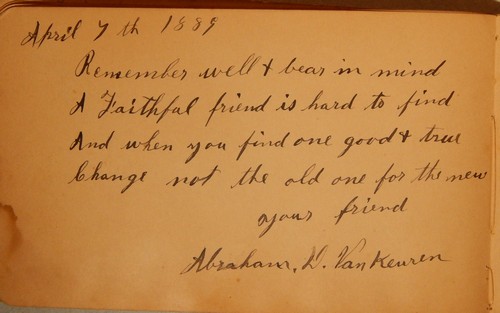 April 7 th 1889
Remember well & bear in mind
A Faithful friend is hard to find
And when you find one good & true
Change not the old one for the new
your friend
Abraham. D. VanKeuren